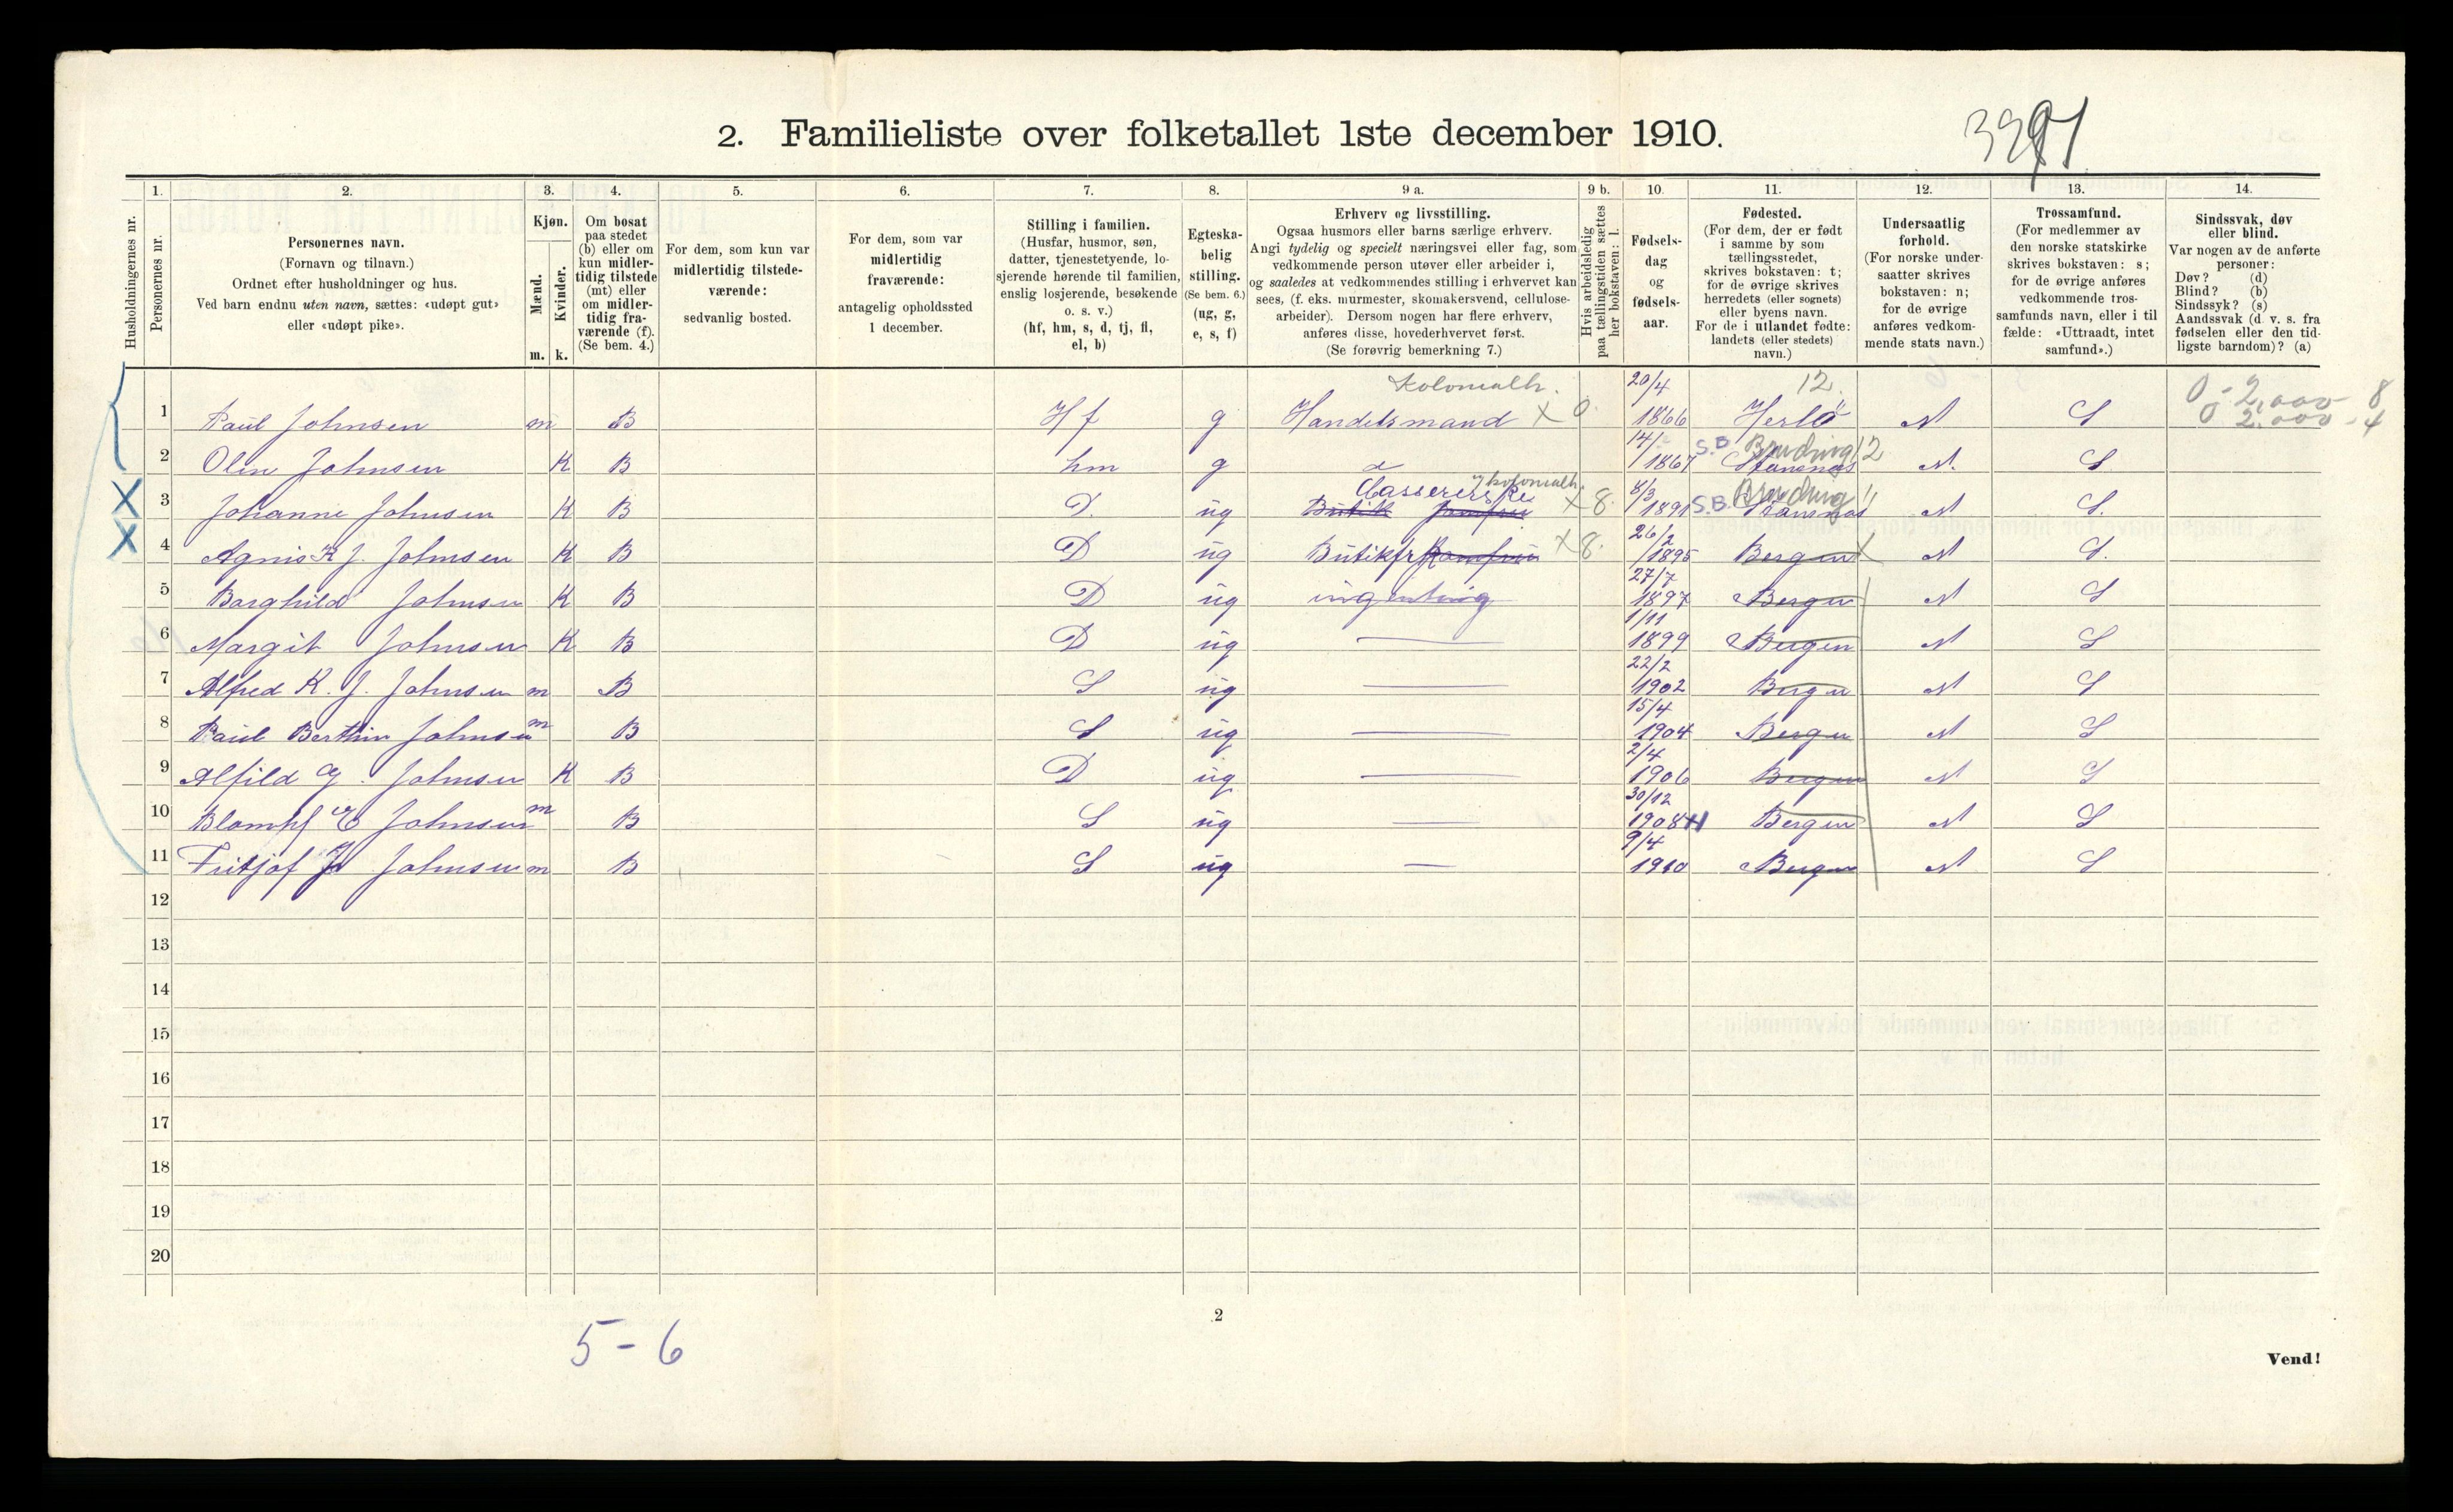 2. Familieliste over folketallet 1ste december 1910.
1. 2. 3. 4. 5. 6. 7. 8. 9 a. 9 b. 10. 11. 12. 13. 14.
Husholdningernes nr.
Personernes nr.
Personernes navn.
(Fornavn og tilnavn.)
Ordnet efter husholdninger og hus.
Ved barn endnu uten navn, sættes: «udøpt gut»
eller «udøpt pike».
Kjøn.
Mænd.
Kvinder.
m. k.
Om bosat
paa stedet
(b) eller om
kun midler-
tidig tilstede
(mt) eller
om midler-
tidig fra-
værende (f).
(Se bem. 4.)
For dem, som kun var
midlertidig tilstede-
værende:
sedvanlig bosted.
For dem, som var
midlertidig
fraværende:
antagelig opholdssted
1 december.
Stilling i familien.
(Husfar, husmor, søn,
datter, tjenestetyende, lo-
sjerende hørende til familien,
enslig losjerende, besøkende
o. s. v.)
(hf, hm, s, d, tj, fl,
el, b)
Egteska-
belig
stilling.
(Se bem. 6.)
(ug, g,
e, s, f)
Erhverv og livsstilling.
Ogsaa husmors eller barns særlige erhverv.
Angi tydelig og specielt næringsvei eller fag, som
vedkommende person utøver eller arbeider i,
og saaledes at vedkommendes stilling i erhvervet kan
sees, (f. eks. murmester, skomakersvend, cellulose-
arbeider). Dersom nogen har flere erhverv,
anføres disse, hovederhvervet først.
(Se forøvrig bemerkning 7.)
Hvis arbeidsledig
paa tællingstiden sættes
her bokstaven: l.
Fødsels-
dag
og
fødsels-
aar.
Fødested.
(For dem, der er født
i samme by som
tællingsstedet,
skrives bokstaven: t;
for de øvrige skrives
herredets (eller sognets)
eller byens navn.
For de i utlandet fødte:
landets (eller stedets)
navn.)
Undersaatlig
forhold.
(For norske under-
saatter skrives
bokstaven: n;
for de øvrige
anføres vedkom-
mende stats navn.)
Trossamfund.
(For medlemmer av
den norske statskirke
skrives bokstaven: s;
for de øvrige anføres
vedkommende tros-
samfunds navn, eller i til
fælde: «Uttraadt, intet
samfund».)
Sindssvak, døv
eller blind.
Var nogen av de anførte
personer:
Døv? (d)
Blind? (b)
Sindssyk? (s)
Aandssvak (d. v. s. fra
fødselen eller den tid-
ligste barndom)? (a)
Kolonialh. 20/4 12. 0 - 2,000 8
1 Paul Johnsen m B Hf g Handelsmand X 0. 1866 Herlö N S 0 2,000 - 4
14/ S.B. Bruding 12
2 Oline Johnsen K B hm g 1867 N. S
Kassererske kolonialh. 8/3 S.B. Bruding "
3 Johanne Johnsen K B D. ug Butik Jomfru X 8. 1891 N S.
26/2
4 Agnis K J. Johnsen K B D ug Butikfr Jomfru X 8. 1895 Bergen X N S.
27/7
5 Borghild Johnsen K B D ug ingenting 1897 Bergen N S
1/11
6 Margit Johnsen K B D ug 1899 Bergen N S
22/2
7 Alfred K. J. Johnsen m B S ug 1902 Bergen N S
15/4
8 Paul Berthin Johnsen m B S ug 1904 Bergen N S
2/4
9 Alfild G. Johnsen K B D ug 1906 Bergen N S
30/12
10 E Johnsen m B S ug 1908 Bergen N S
9/4
11 Fritjof Johnsen m B S ug 1910 Bergen N S
12
13
14
15
16
17
18
19
20
2
5 - 6
Vend!